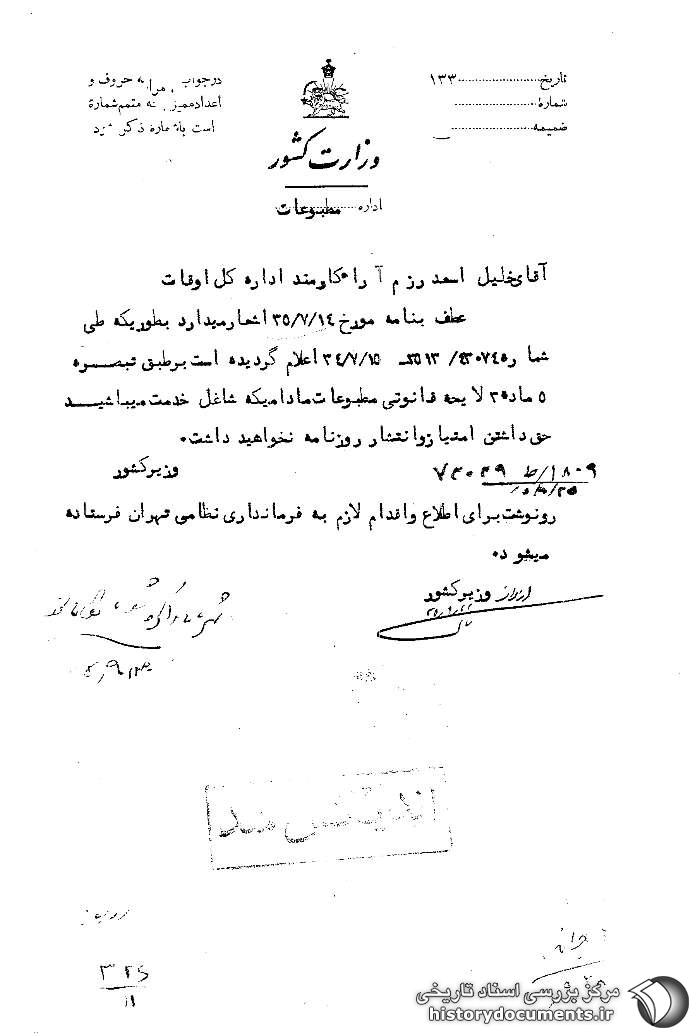 تاریخ ........................ ۱۳۳
شمارهٔ ........................
ضمیمه ........................
در جواب به حروف و
اعداد ممیزه که متمم شمارهٔ
است با شماره ذکر شود
وزارت کشور
اداره مطبوعات
آقای خلیل اسعد رزم آرا کارمند اداره کل اوقات
عطف بنامه مورخ ۳۵/۷/۱۴ اشعار میدارد بطوریکه طی
شماره اعلام گردیده است برطبق تبصره
۵ ماده ۲ لایحه قانونی مطبوعات مادامیکه شاغل خدمت میباشید
حق داشتن امتیاز و انتشار روزنامه نخواهید داشت.
وزیر کشور
رونوشت برای اطلاع و اقدام لازم به فرمانداری نظامی تهران فرستاده
میشود.
از طرف وزیر کشور
اندیکس شد
۳۲۵
۱۱
مرکز بررسی اسناد تاریخی
historydocuments.ir